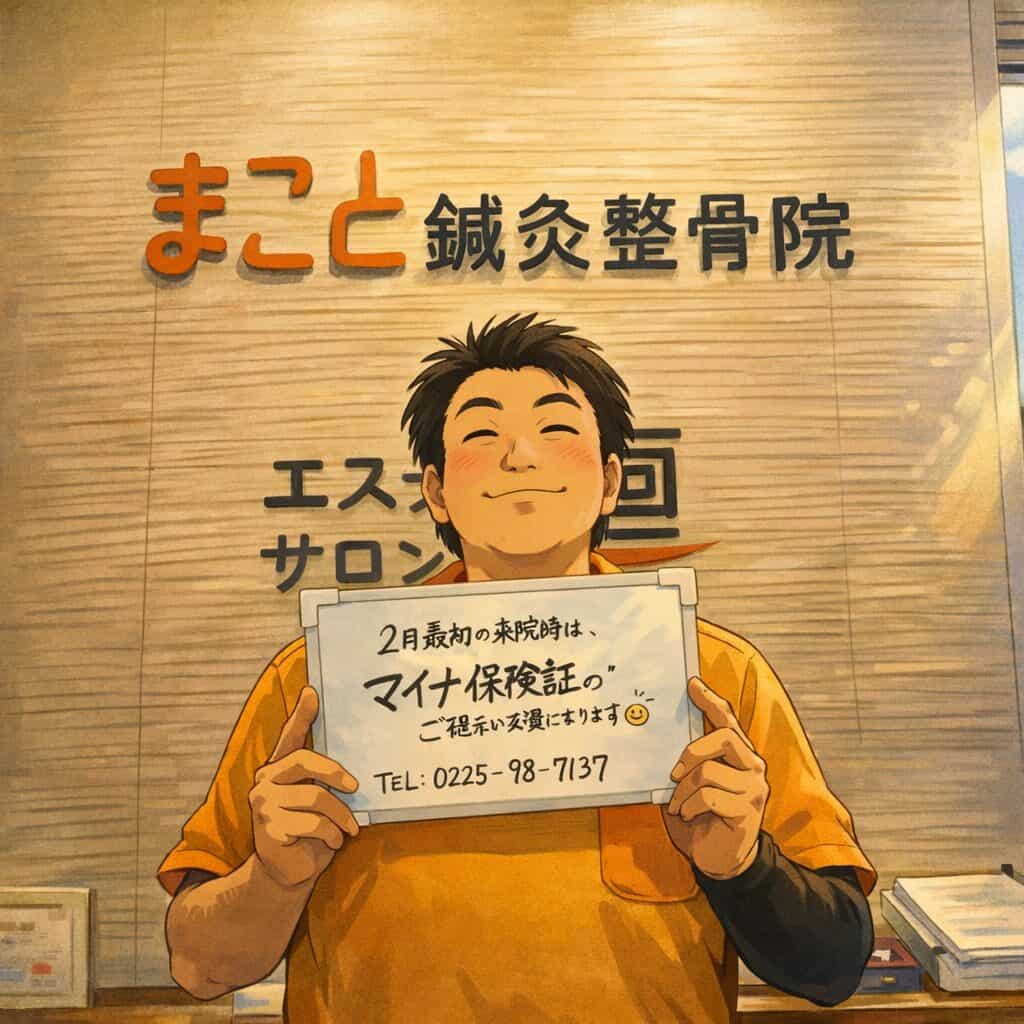 まこと鍼灸整骨院
エス
サロン
回
2月最初の来院時は、
マイナ保険証の
ご提示い
になります
TEL: 0225-98-7137